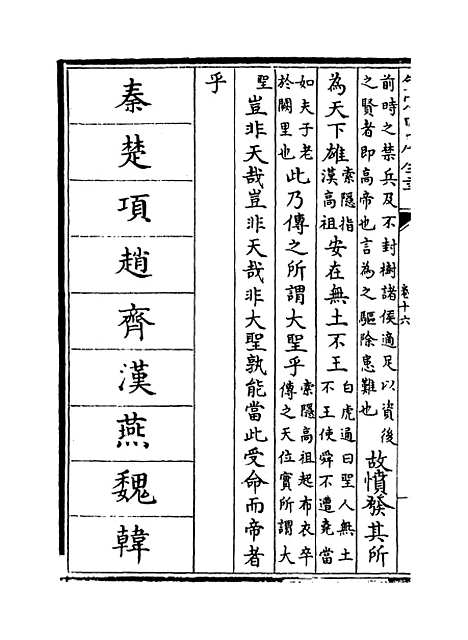 卷十六
前時之禁兵及不封樹諸侯適足以資後
之賢者即高帝也言為之驅除患難也
故憤發其所
為天下雄
索隱指
漢高祖
安在無土不王
白虎通曰聖人無土
不王使舜不遭堯當
如夫子老
於闕里也
此乃傳之所謂大聖乎
索隱高祖起布衣卒
傳之天位實所謂大
聖
豈非天哉豈非天哉非大聖孰能當此受命而帝者
乎
秦
楚
項
趙
齊
漢
燕
魏
韓